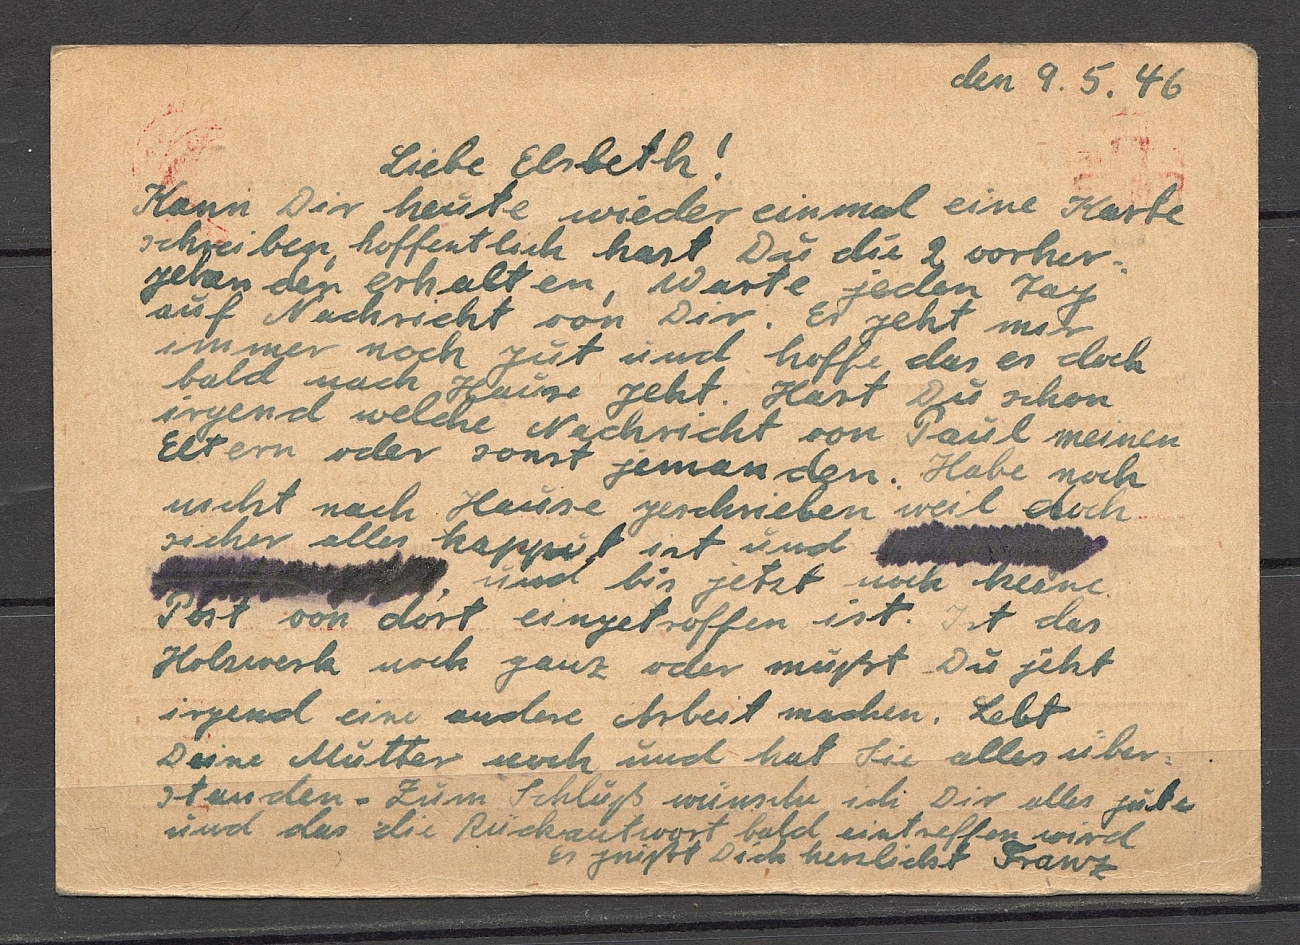 den 9. 5. 46
Liebe Elsbeth!
Kann Dir heute wieder einmal eine Karte
schreiben, hoffentlich hast Du die 2 vorher-
gehanden erhalten, Warte jeden Tag
auf Nachricht von Dir. Es geht mir
immer noch gut und hoffe das es doch
bald nach Hause geht. Hast Du schon
irgend welche Nachricht von Paul meinen
Eltern oder sonst jemanden. Habe noch
nicht nach Hause geschrieben weil doch
sicher alles kapput ist und
, und bis jetzt noch keine
Post von dort eingetroffen ist. Ist das
Holzwerk noch ganz oder mußt Du jeht
irgend eine andere Arbeit machen. Lebt
Deine Mutter noch und hat Sie alles über-
standen. Zum Schluß wünsche ich Dir alles gute
und das die Rückantwort bald eintreffen wird
Es grüßt Dich herzlichst Franz